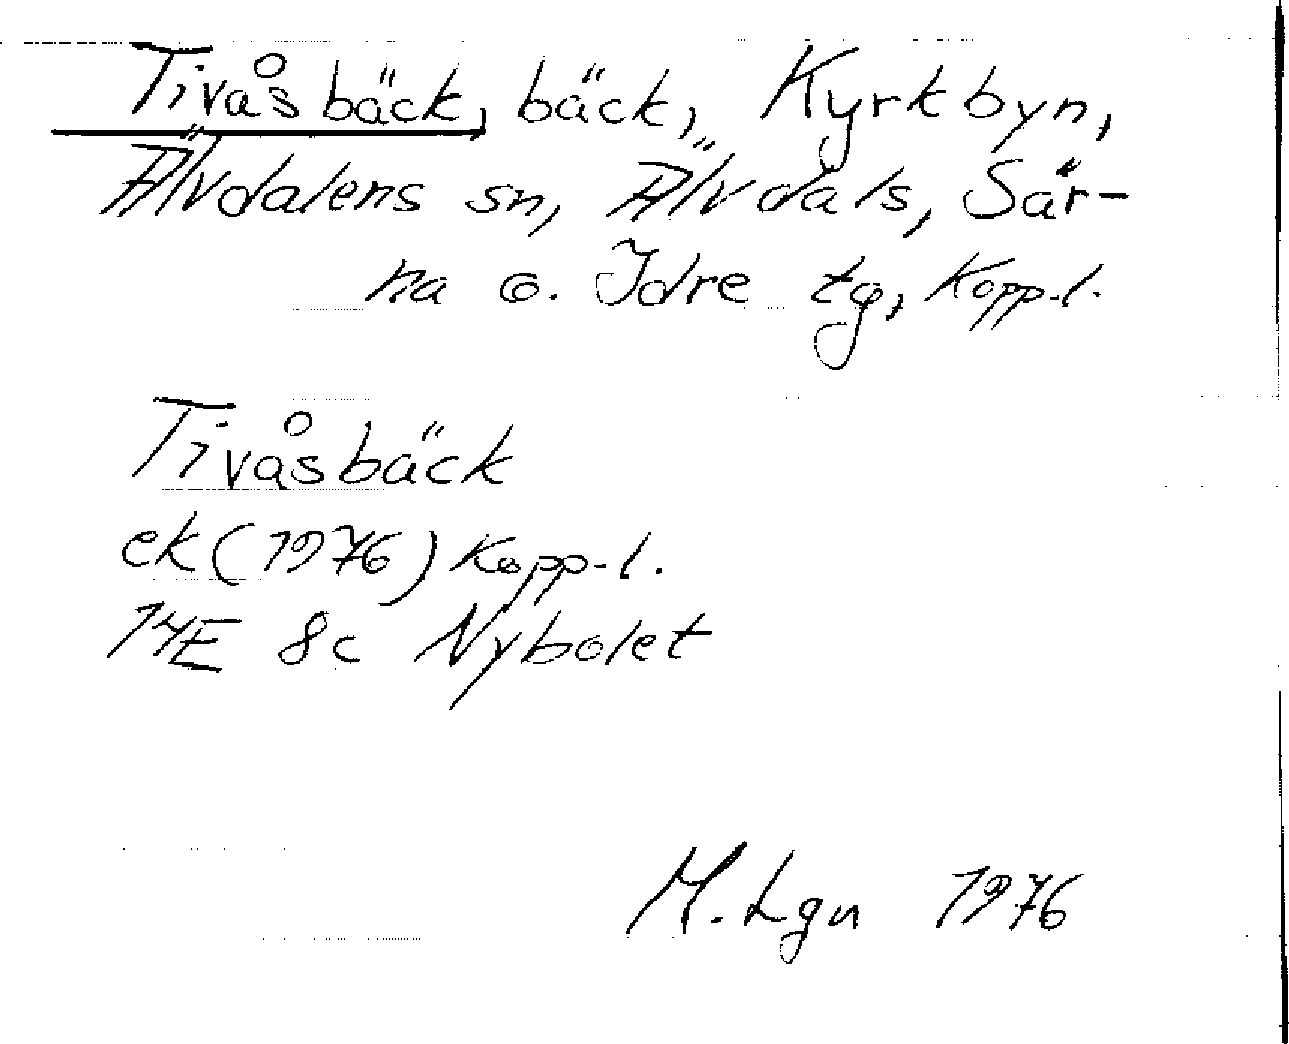 Tivåsbäck, bäck, Kyrkbyn,
Älvdalens sn, Älvdals, Sär-
na o. Idre tg, Kopp.l.
Tivåsbäck
ek (1976) Kopp.l.
14E 8c Nybolet
M. Lgn 1976